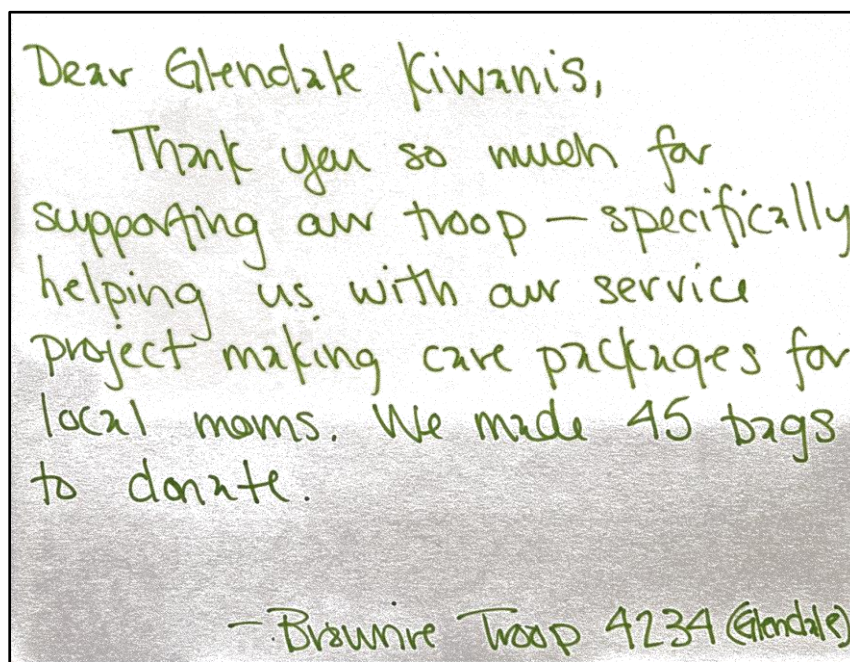 Dear Glendale Kiwanis,
Thank you so much for
supporting our troop – specifically
helping us with our service
project making care packages for
local moms. We made 45 bags
to donate.
– Brownie Troop 4234 (Glendale)